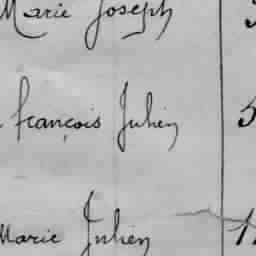 Marie Joseph
françois Julien 5
Marie Julien 1